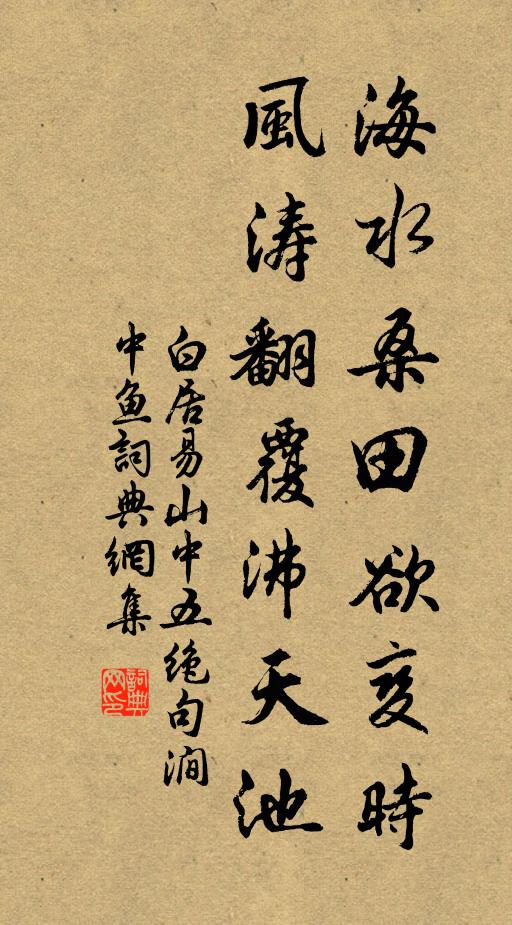 海水桑田欲变時
風涛翻覆沸天池
白居易山中五绝句涧
中鱼詞典網集
詞典
网印